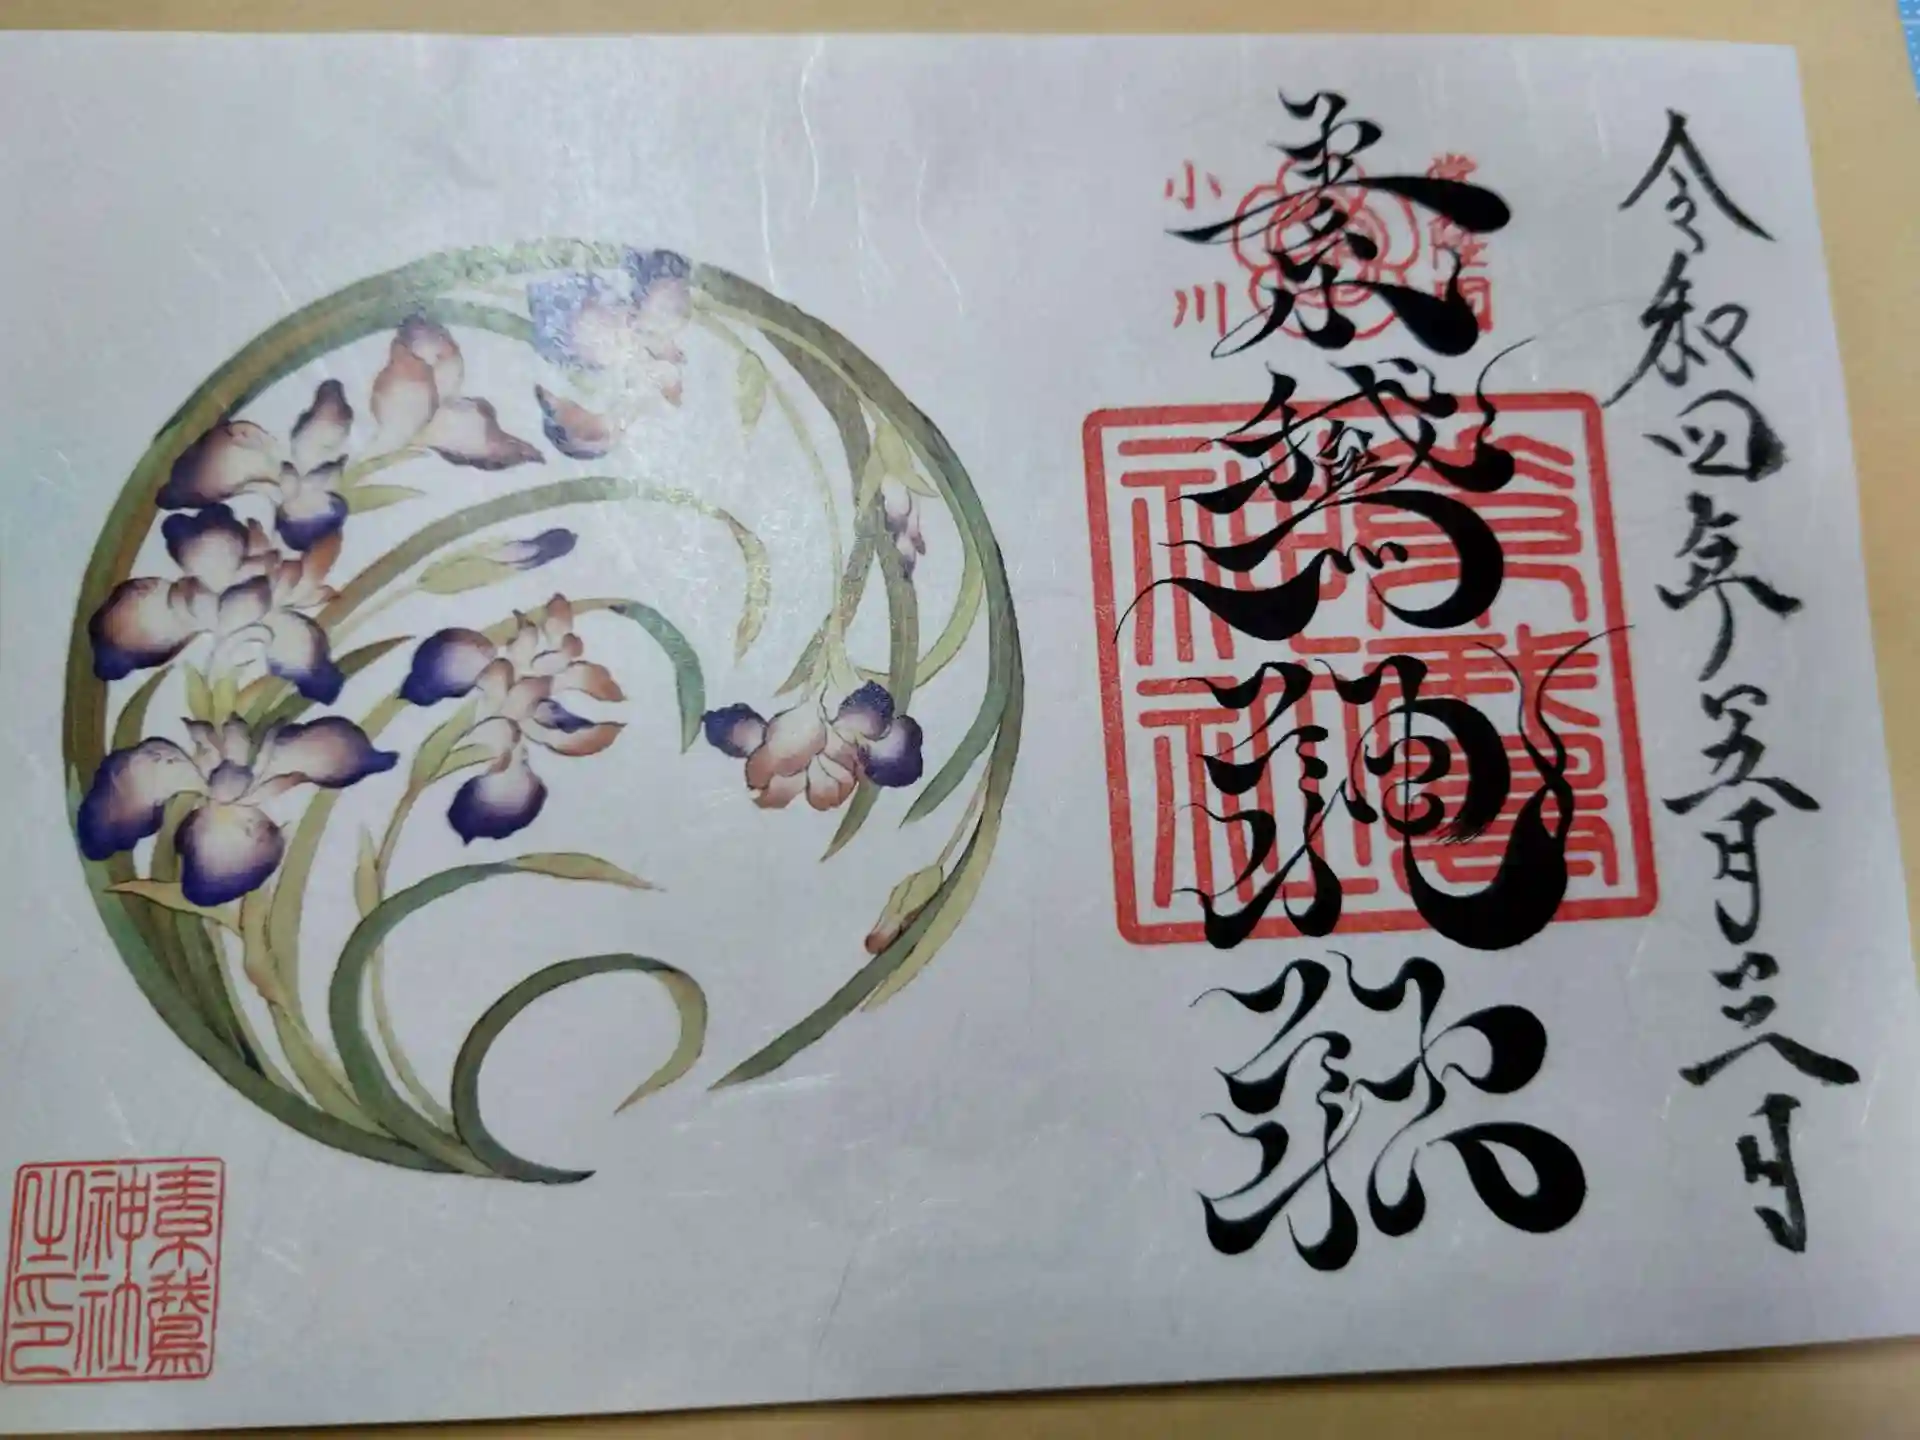 令和四年五月二八日
常陸國
小川
素鵞神社
素鵞神社
素鵞
神社
之印